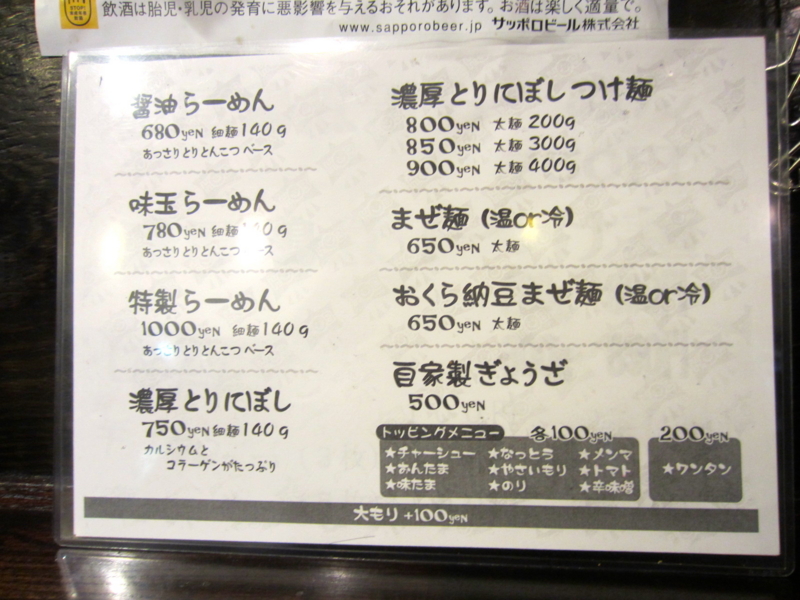 飲酒は胎児・乳児の発育に悪影響を与えるおそれがあります。お酒は楽しく適量で。
www.sapporobeer.jp サッポロビール株式会社
醤油らーめん
680yeN 細麺140g
あっさりとりとんこつベース
味玉らーめん
780yeN 細麺140g
あっさりとりとんこつベース
特製らーめん
1000yeN 細麺140g
あっさりとりとんこつベース
濃厚とりにぼし
750yeN 細麺140g
カルシウムと
コラーゲンがたっぷり
濃厚とりにぼしつけ麺
800yeN 太麺200g
850yeN 太麺300g
900yeN 太麺400g
まぜ麺(温or冷)
650yeN 太麺
おくら納豆まぜ麺(温or冷)
650yeN 太麺
自家製ぎょうざ
500yeN
トッピングメニュー 各100yeN
★チャーシュー ★なっとう ★メンマ
★おんたま ★やさいもり ★トマト
★味たま ★のり ★辛味噌
200yeN
★ワンタン
大もり+100yeN